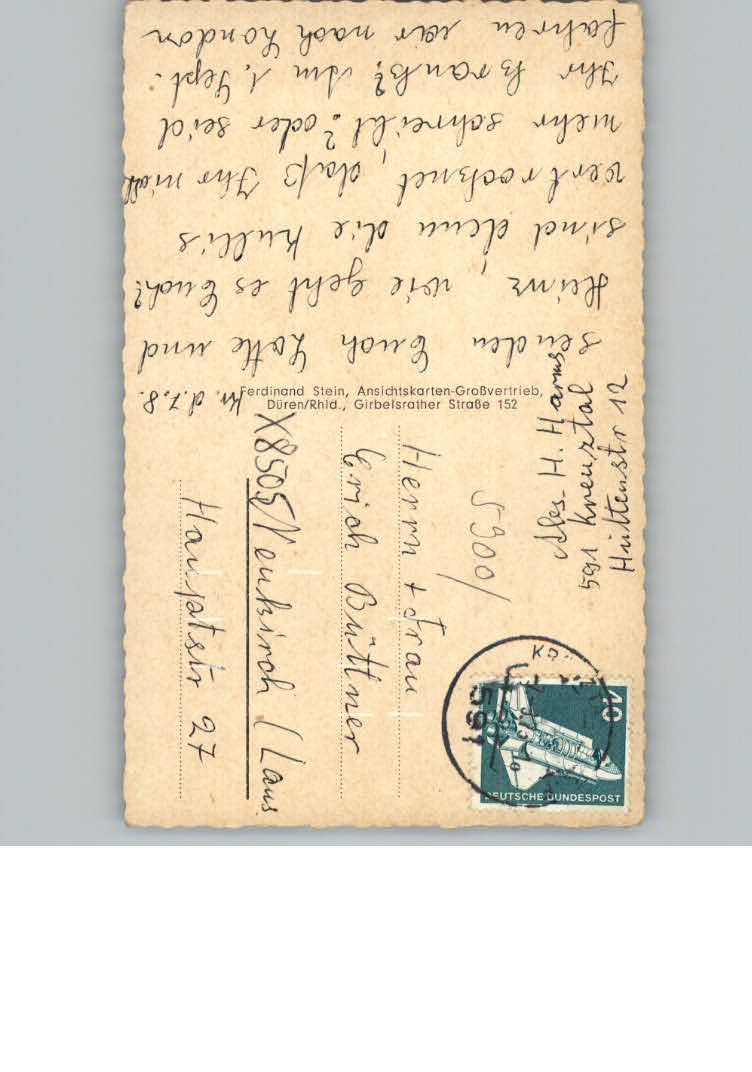 Kr. d. 7.8.
senden Euch Lotte und
Heinz, wie geht es Euch?
sind denn die Kullis
vertrocknet, daß Ihr nicht
mehr schreibt? oder seid
Ihr krank? Am 1. Sept.
fahren wir nach London
Ferdinand Stein, Ansichtskarten-Großvertrieb,
Düren/Rhld., Girbelsrather Straße 152
Abs. H. Harms
591 Kreuztal
Hüttenstr 12
5900/
Herrn + Frau
Erich Büttner
X8505/Neukirch (Laus.
Hauptstr 27
591
40
DEUTSCHE BUNDESPOST